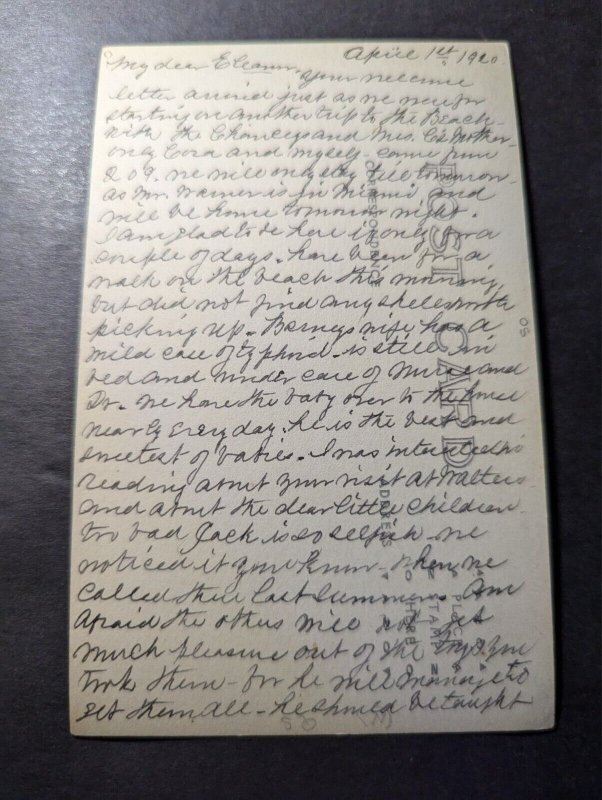 April 1st 1920
My dear Eleanor. Your welcome
letter arrived just as we were
starting on another trip to the Beach
with the Chanceys and Mrs. C's Mother
only Cora and myself came from
209. we will only stay till tomorrow
as Mr. Warner is in Miami and
will be home tomorrow night.
I am glad to be here if only for a
couple of days. have been for a
walk on the beach this morning
but did not find any shells worth
picking up. Barney's wife has a
mild case of typhoid. is still in
bed and under care of Nurse and
Dr. We have the baby over to the house
nearly every day. he is the best and
sweetest of babies. I was interested in
reading about your visit at Walters
and about the dear little children
too bad Jack is so selfish. we
noticed it you know when we
called there last summer. Am
afraid the others will not get
much pleasure out of the toys you
took them for he will manage to
get them all. he should be taught
POST CARD
CORRESPONDENCE
ADDRESS
PLACE
STAMP
HERE